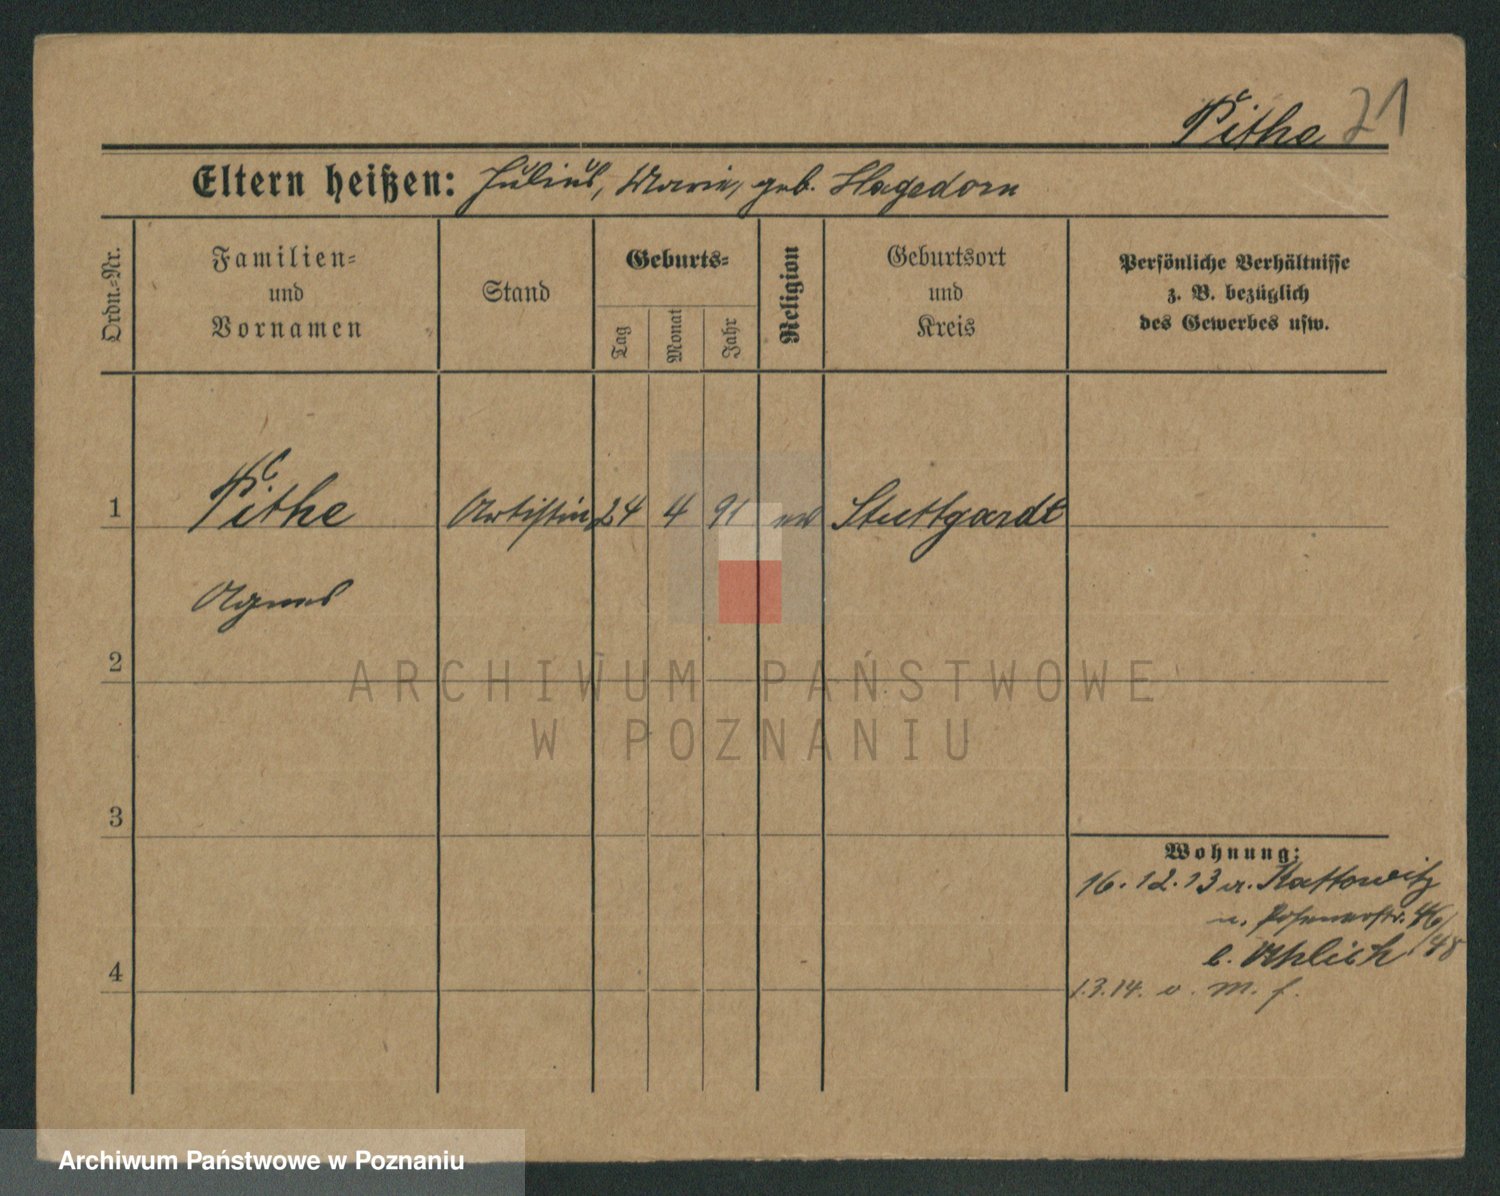 Pithe 21
Eltern heißen: Julius, Marie, geb. Hagedorn
Ordn.-Nr.
Familien-
und
Vornamen
Stand
Geburts-
Tag
Monat
Jahr
Religion
Geburtsort
und
Kreis
Persönliche Verhältnisse
z. B. bezüglich
des Gewerbes usw.
1 Pithe Artistin 24 4 91 ev Stuttgardt
Agnes
2
ARCHIWUM PAŃSTWOWE
W POZNANIU
3
Wohnung:
16.12.13 a. Kattowitz
n. Posenerstr. 46/
b. Uhlich /48
4
1.3.14. v. M. f.
Archiwum Państwowe w Poznaniu